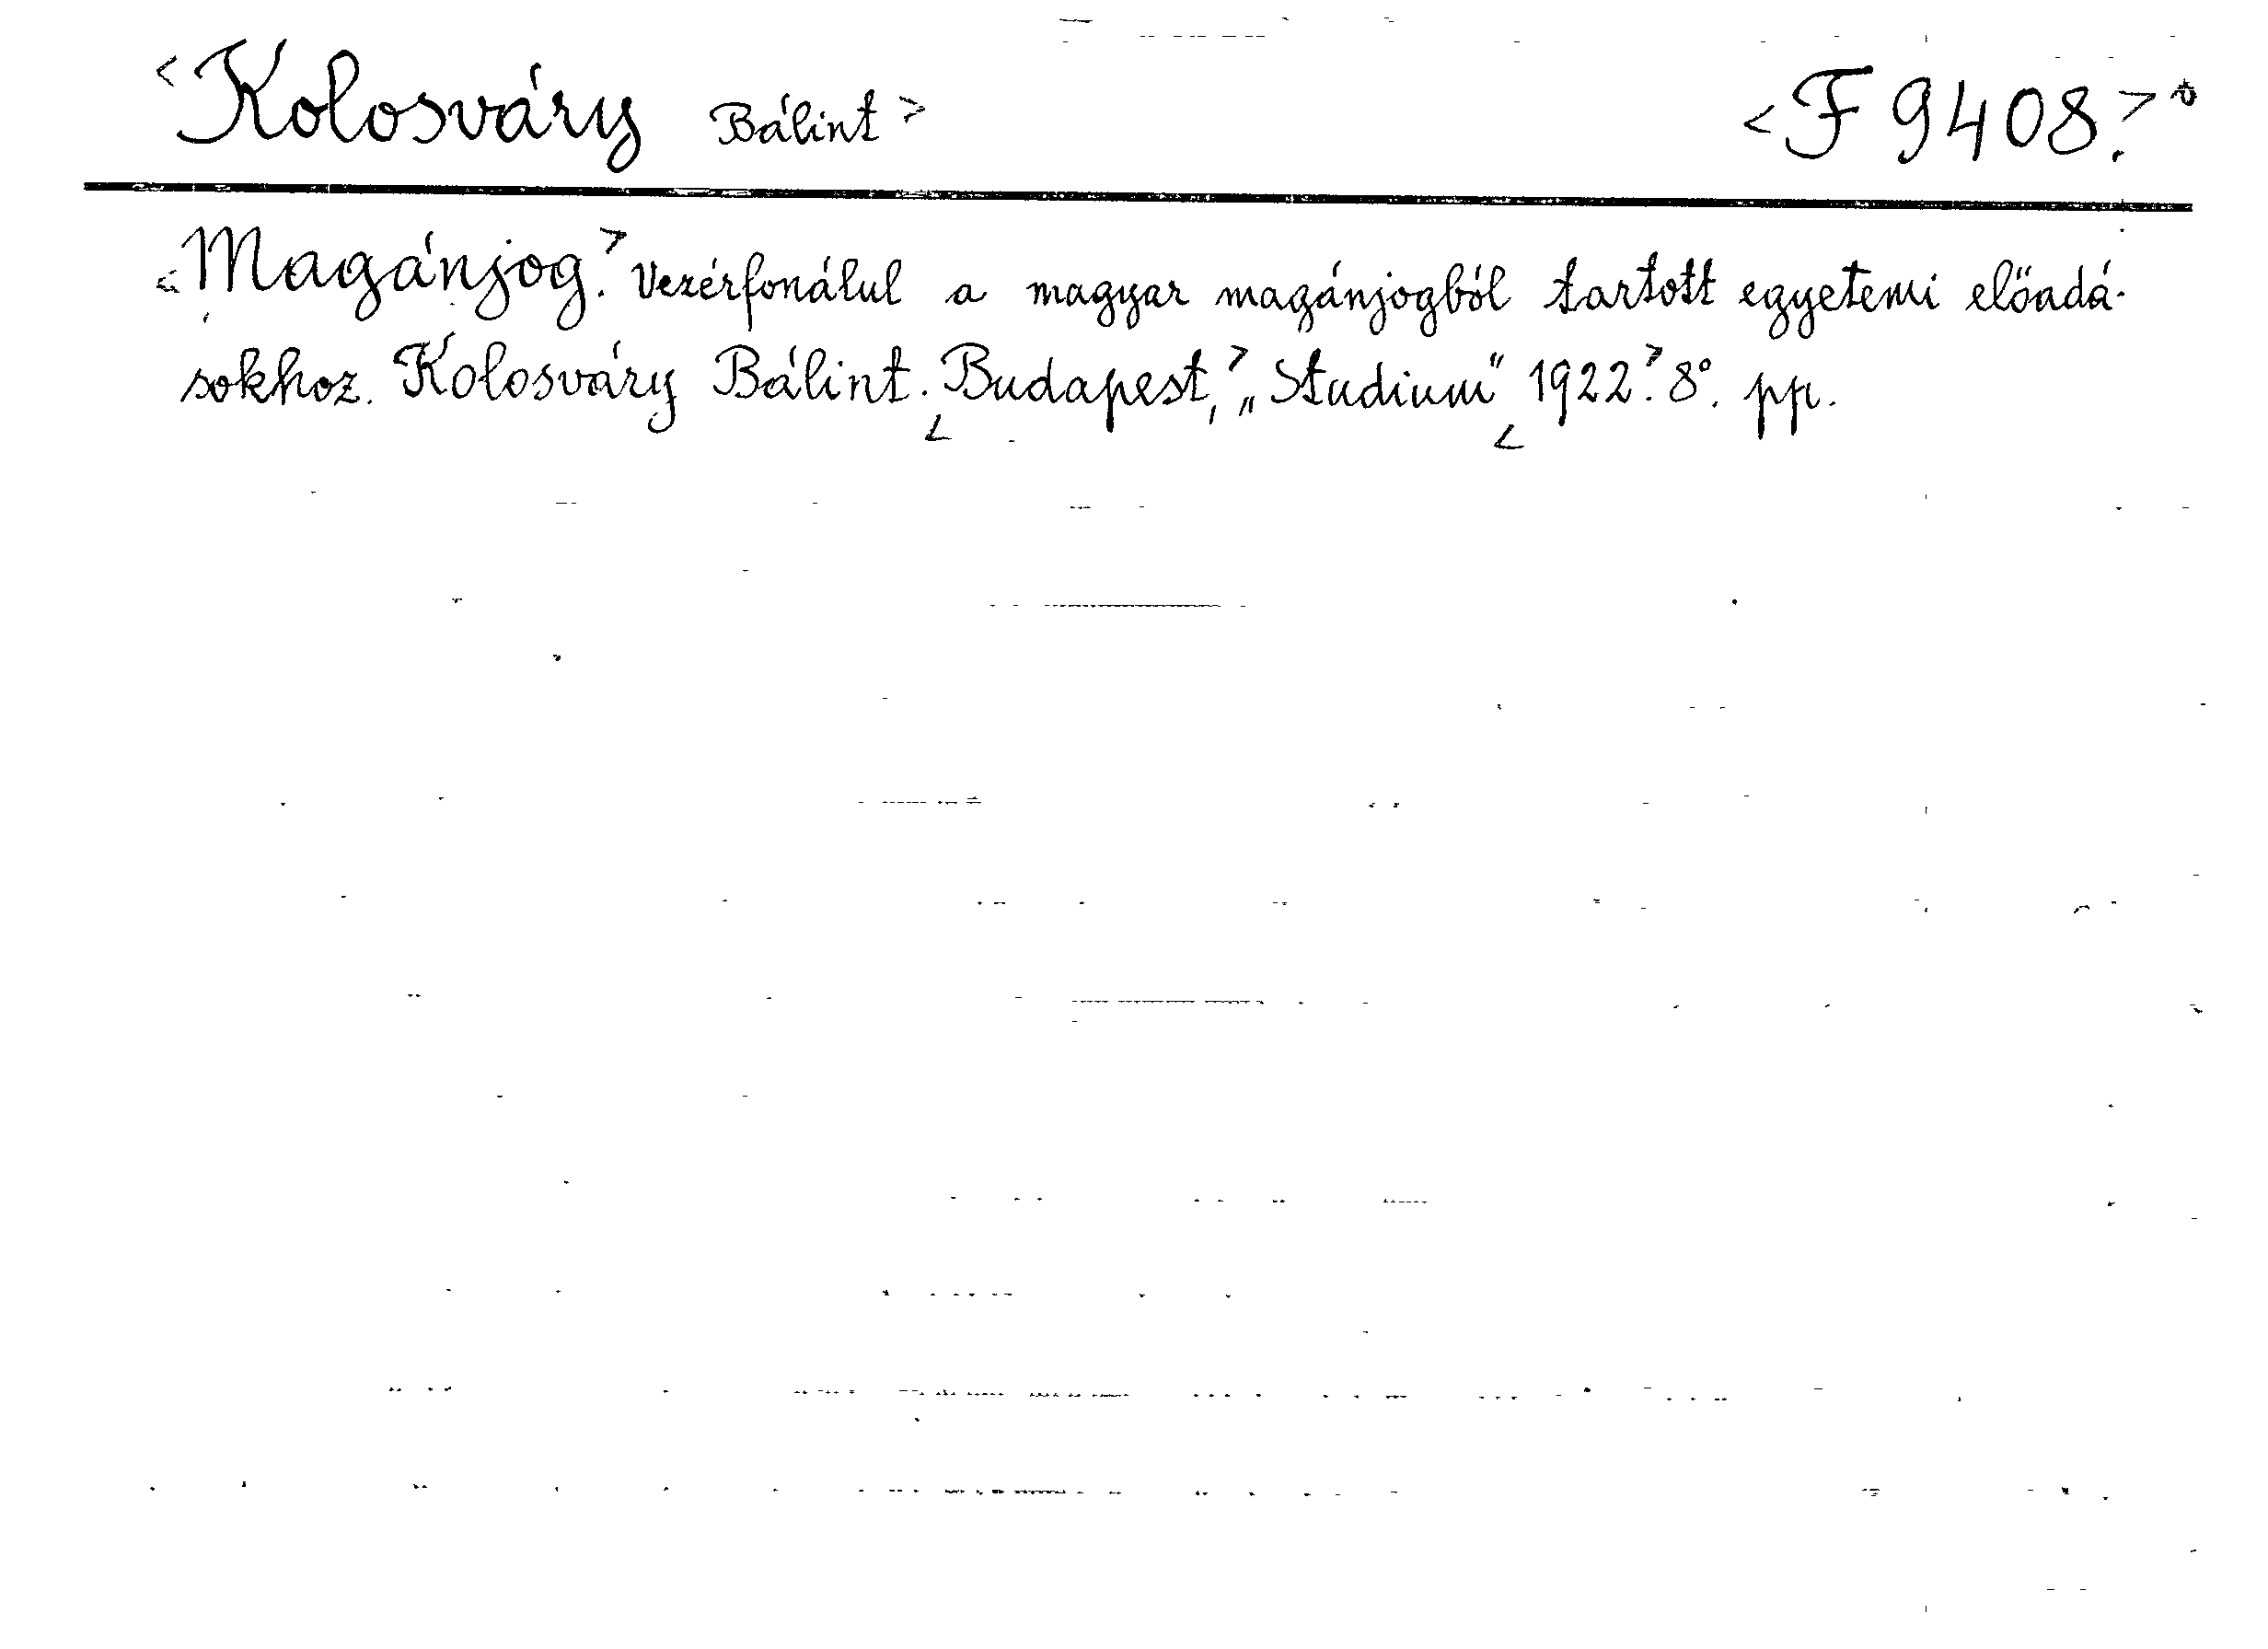 <Kolosváry Bálint> <F 9408.>
<Magánjog.> Vezérfonálul a magyar magánjogból tartott egyetemi előadá-
sokhoz. Kolosváry Bálint. <Budapest,> „Studium" <1922.> 8°. pp.